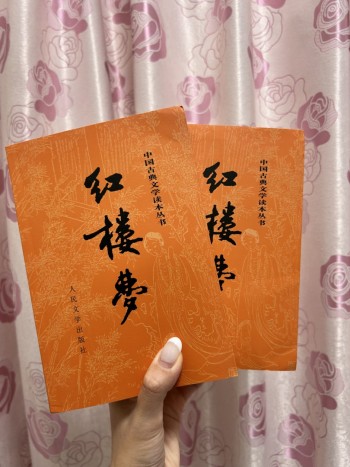 中国古典文学读本丛书
红楼梦
人民文学出版社
中国古典文学读本丛书
红楼